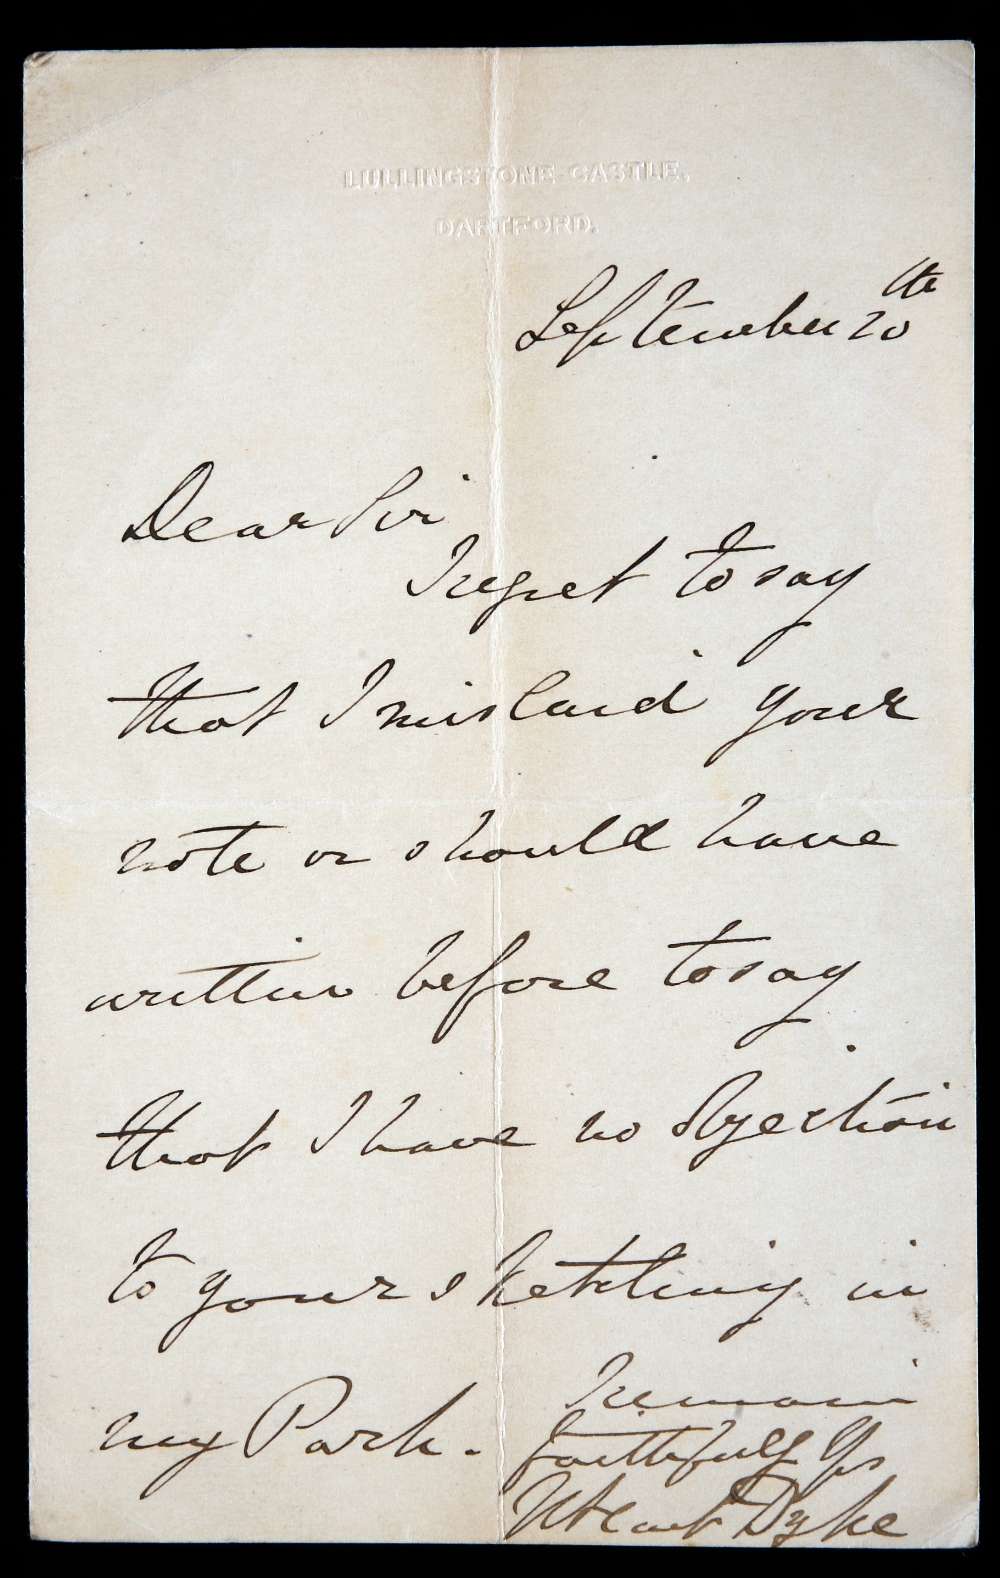 LULLINGSTONE CASTLE,
DARTFORD.
September 20th
Dear Sir
I regret to say
that I mislaid your
note or should have
written before to say
that I have no objection
to your sketching in
my Park.
I remain
faithfully Yrs
W Hart Dyke